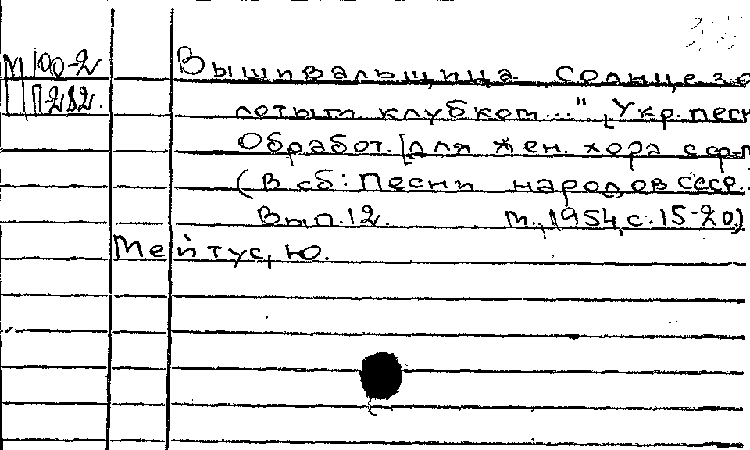 М 100-2
П 282.
Вышивальщица „Солнце зо
лотым клубком..." [Укр. песн
Обработ. [для жен. хора с ф.-п
(В сб: Песни народов СССР.
Вып. 12. М., 1954, с. 15-20)
Мейтус, Ю.